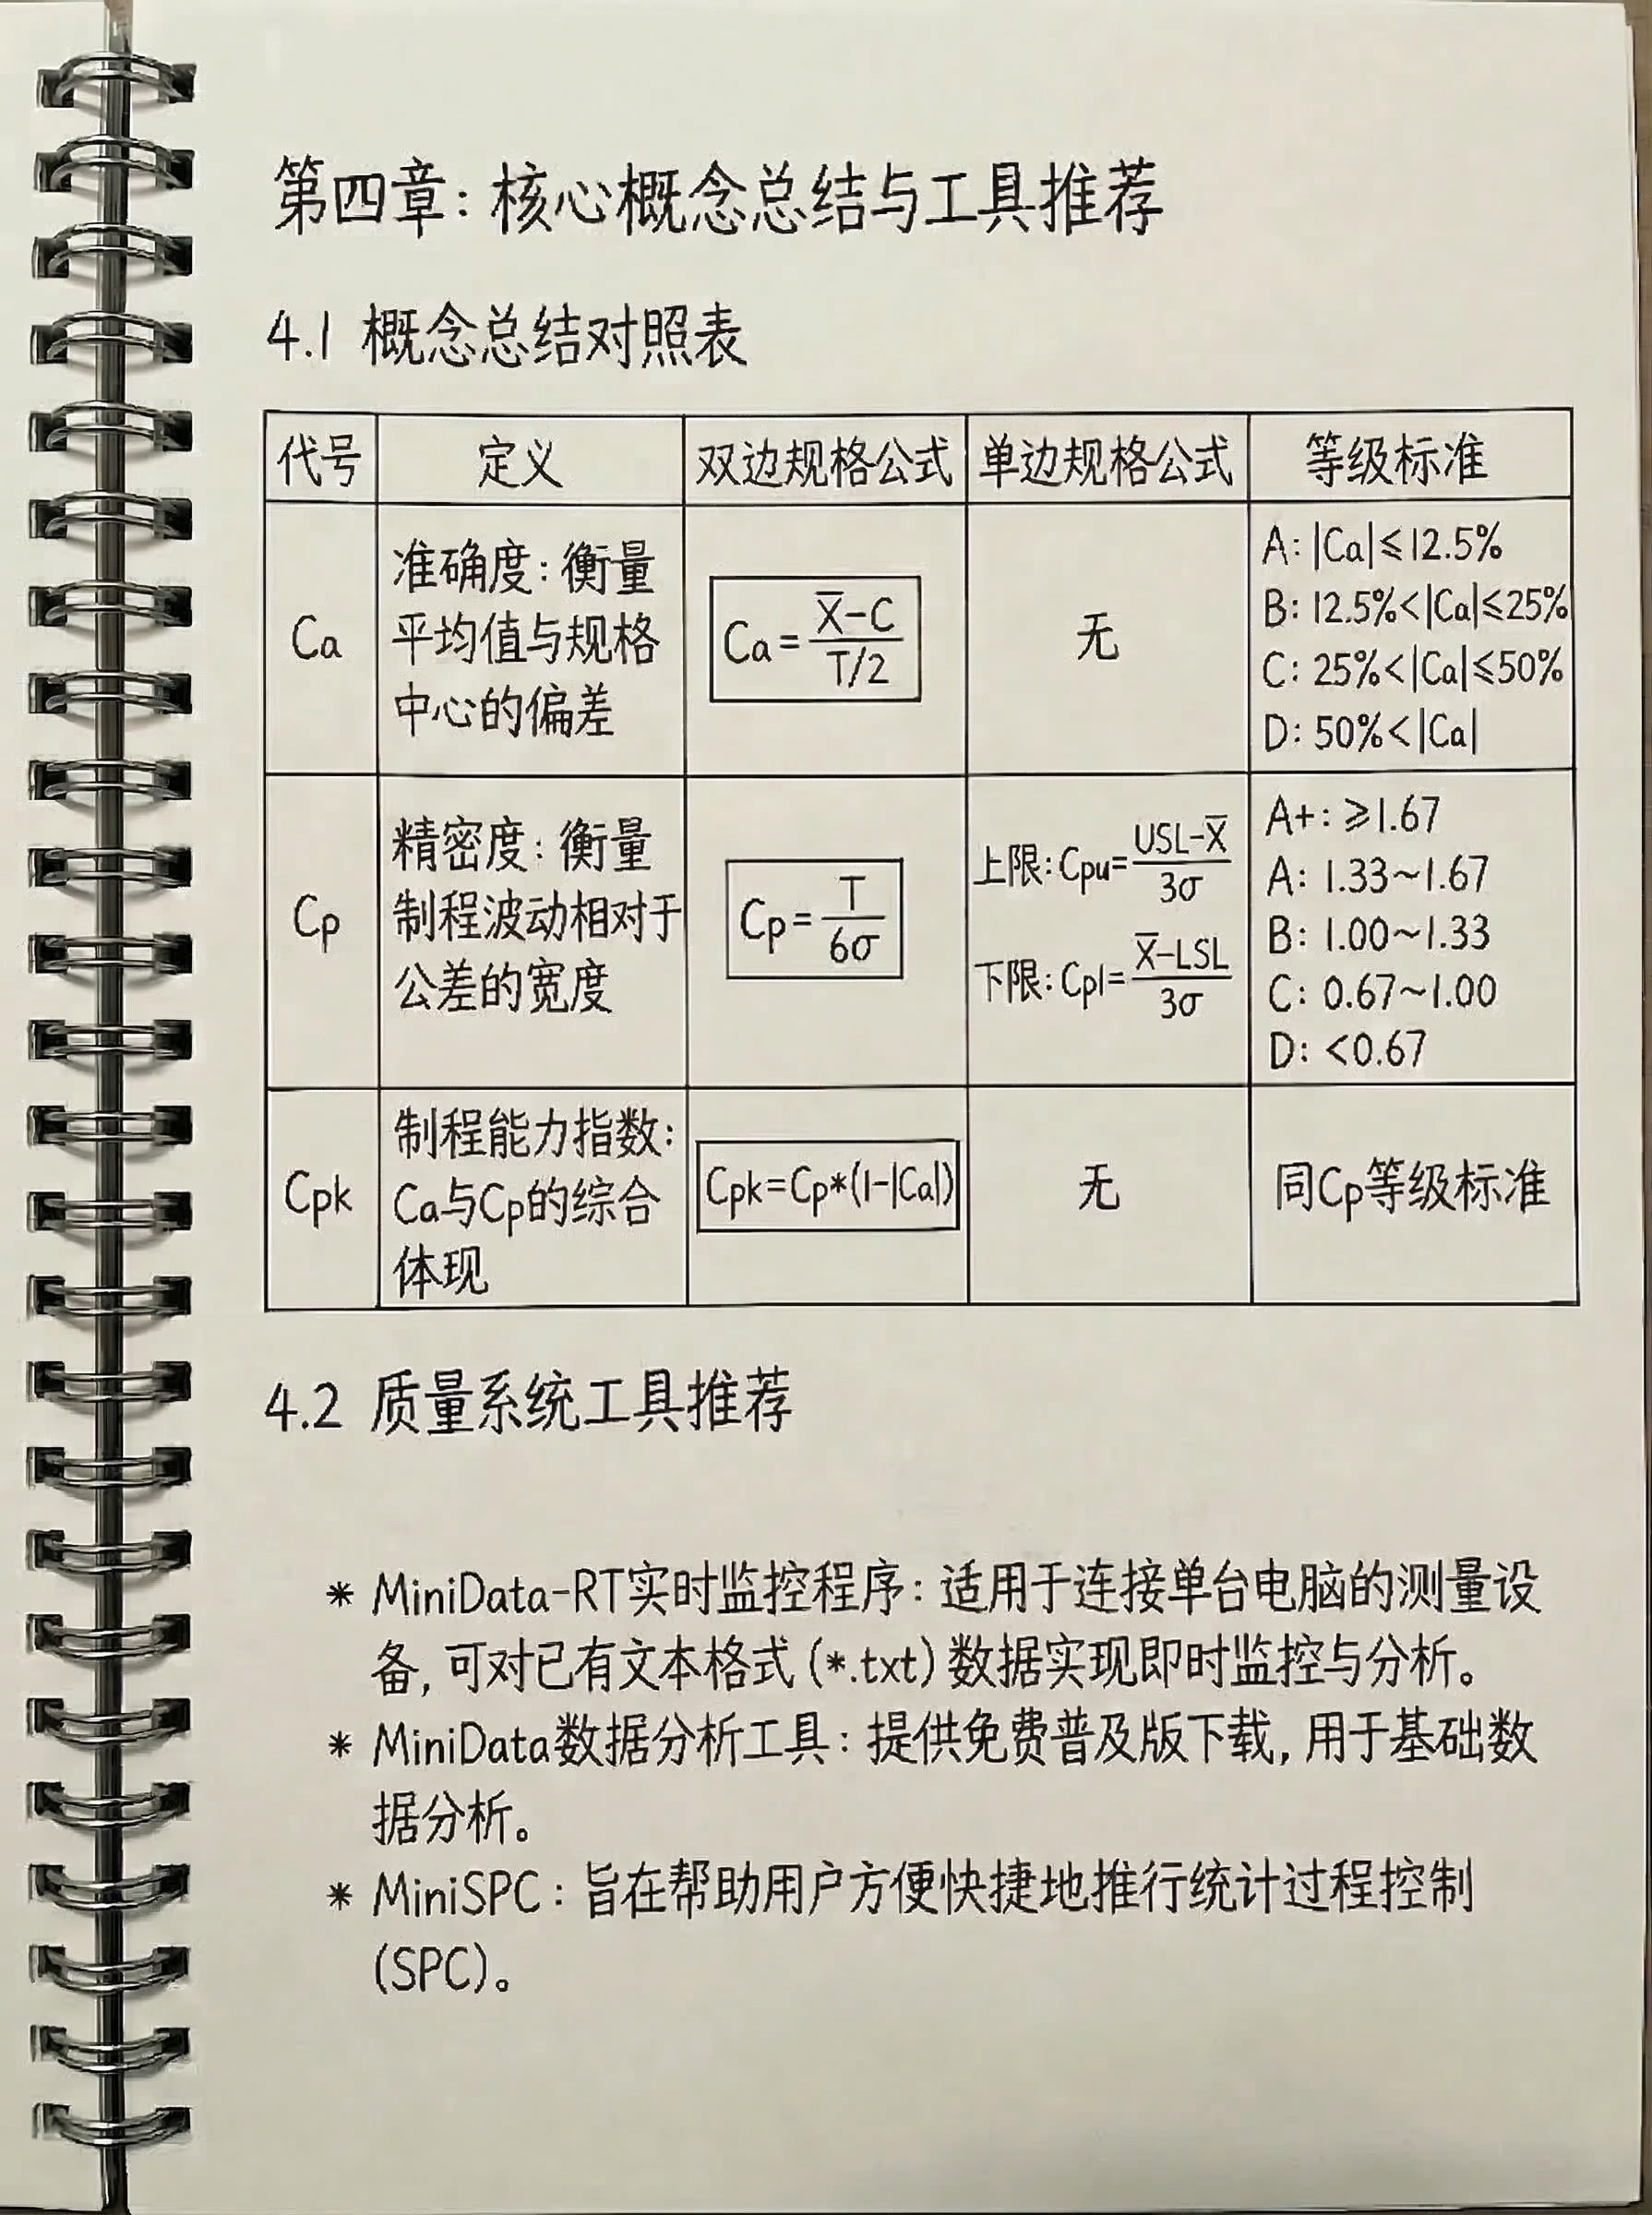 第四章：核心概念总结与工具推荐
4.1 概念总结对照表
代号 定义 双边规格公式 单边规格公式 等级标准
Ca
准确度：衡量
平均值与规格
中心的偏差
Ca=(X̄-C)/(T/2)
无
A: |Ca|≤12.5%
B: 12.5%<|Ca|≤25%
C: 25%<|Ca|≤50%
D: 50%<|Ca|
Cp
精密度：衡量
制程波动相对于
公差的宽度
Cp=T/6σ
上限: Cpu=(USL-X̄)/3σ
下限: Cpl=(X̄-LSL)/3σ
A+: ≥1.67
A: 1.33~1.67
B: 1.00~1.33
C: 0.67~1.00
D: <0.67
Cpk
制程能力指数：
Ca与Cp的综合
体现
Cpk=Cp*(1-|Ca|)
无
同Cp等级标准
4.2 质量系统工具推荐
* MiniData-RT实时监控程序：适用于连接单台电脑的测量设
备, 可对已有文本格式 (*.txt) 数据实现即时监控与分析。
* MiniData数据分析工具：提供免费普及版下载, 用于基础数
据分析。
* MiniSPC：旨在帮助用户方便快捷地推行统计过程控制
(SPC)。